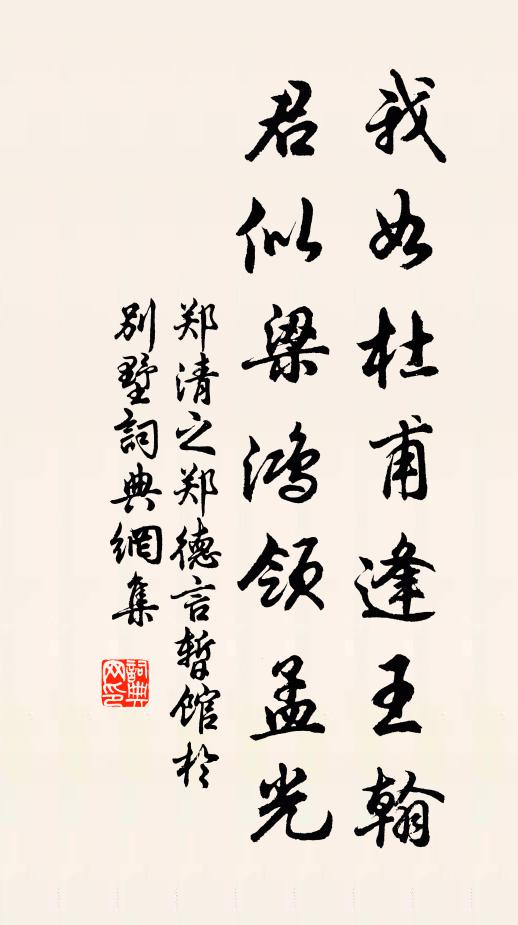 我如杜甫逢王翰
君似梁鸿领孟光
郑清之郑德言暂馆於
别墅詞典網集
詞典网印